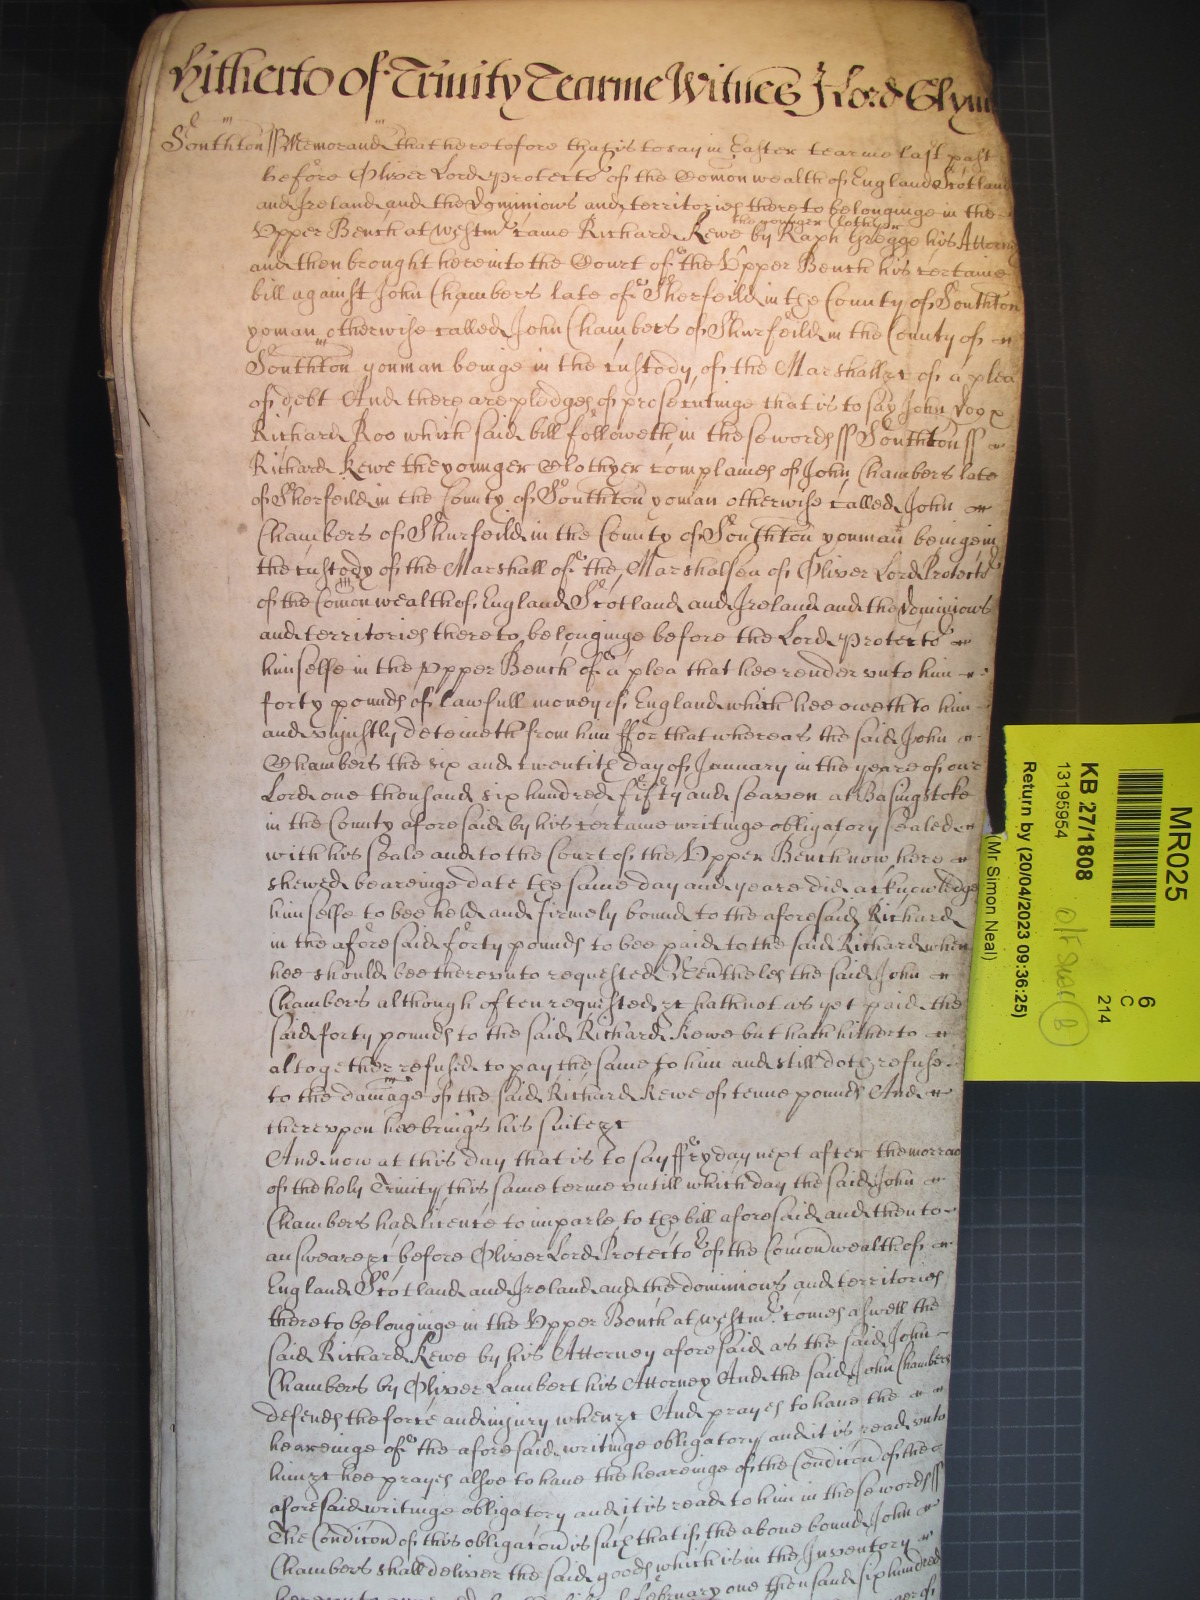 Hitherto of Trinity Tearme Witnes J Lord Glyn
Southton ss Memorand that heretofore that is to say in Easter tearme last past
before Oliver Lord Protector of the Comon wealth of England Scotland
and Ireland and the Dominions and territories thereto belonginge in the
the younger Clothyer
Upper Bench at Westmr came Richard Kewe by Raph Gregge his Attorny
and then brought here into the Court of the Upper Bench his certaine
bill against John Chambers late of Sherfeild in the County of Southton
yoman otherwise called John Chambers of Shurfeild in the County of
Southton yonman beinge in the custody of the Marshall &c of a plea
of debt And there are pledges of prosecutinge that is to say John Doo &
Richard Roo which said bill followeth in these words ss Southton ss
Richard Kewe the younger Clothyer complaines of John Chambers late
of Sherfeild in the County of Southton yoman otherwise called John
Chambers of Shurfeild in the County of Southton yonman beinge in
the custody of the Marshall of the Marshalsea of Oliver Lord Protector
of the Comon wealth of England Scotland and Ireland and the Dominions
and territories thereto belonginge before the Lord Protector
himselfe in the Upper Bench of a plea that hee render unto him
forty pounds of lawfull money of England which hee oweth to him
and unjustly deteineth from him ffor that whereas the said John
Chambers the six and twentith day of January in the yeare of our
Lord one thousand six hundred fifty and seaven at Basingstoke
in the County aforesaid by his certaine writinge obligatory sealed
with his seale and to the Court of the Upper Bench now here
shewed beareinge date the same day and yeare did acknowledge
himselfe to bee held and firmely bound to the aforesaid Richard
in the aforesaid forty pounds to bee paid to the said Richard when
hee should bee thereunto requested Neverthelès the said John
Chambers although often requested &c hath not as yet paid the
said forty pounds to the said Richard Kewe but hath hitherto
altogether refused to pay the same to him and still doth refuse
to the damage of the said Richard Kewe of tenne pounds And
thereupon hee brings his suite &c
And now at this day that is to say ffryday next after the morrow
of the holy Trinity this same terme untill which day the said John
Chambers had licence to imparle to the bill aforesaid and then to
answeare &c before Oliver Lord Protector of the Comonwealth of
England Scotland and Ireland and the dominions and territories
thereto belonginge in the Upper Bench at Westmr comes aswell the
said Richard Kewe by his Attorney aforesaid as the said John
Chambers by Oliver Lambert his Attorney And the said John Chambers
defends the force and injury when &c And prayes to have the
heareinge of the aforesaid writinge obligatory and it is read unto
him &c hee prayes alsoe to have the heareinge of the Condicon of the
aforesaid writinge obligatory and it is read to him in these words ss
The Condicon of this obligacon is such that if the above bound John
Chambers shall deliver the said goods which is in the Inventory
February one thousand six hundred
MR025
6
C
214
KB 27/1808
13195954
Return by (20/04/2023 09:36:25)
(Mr Simon Neal)